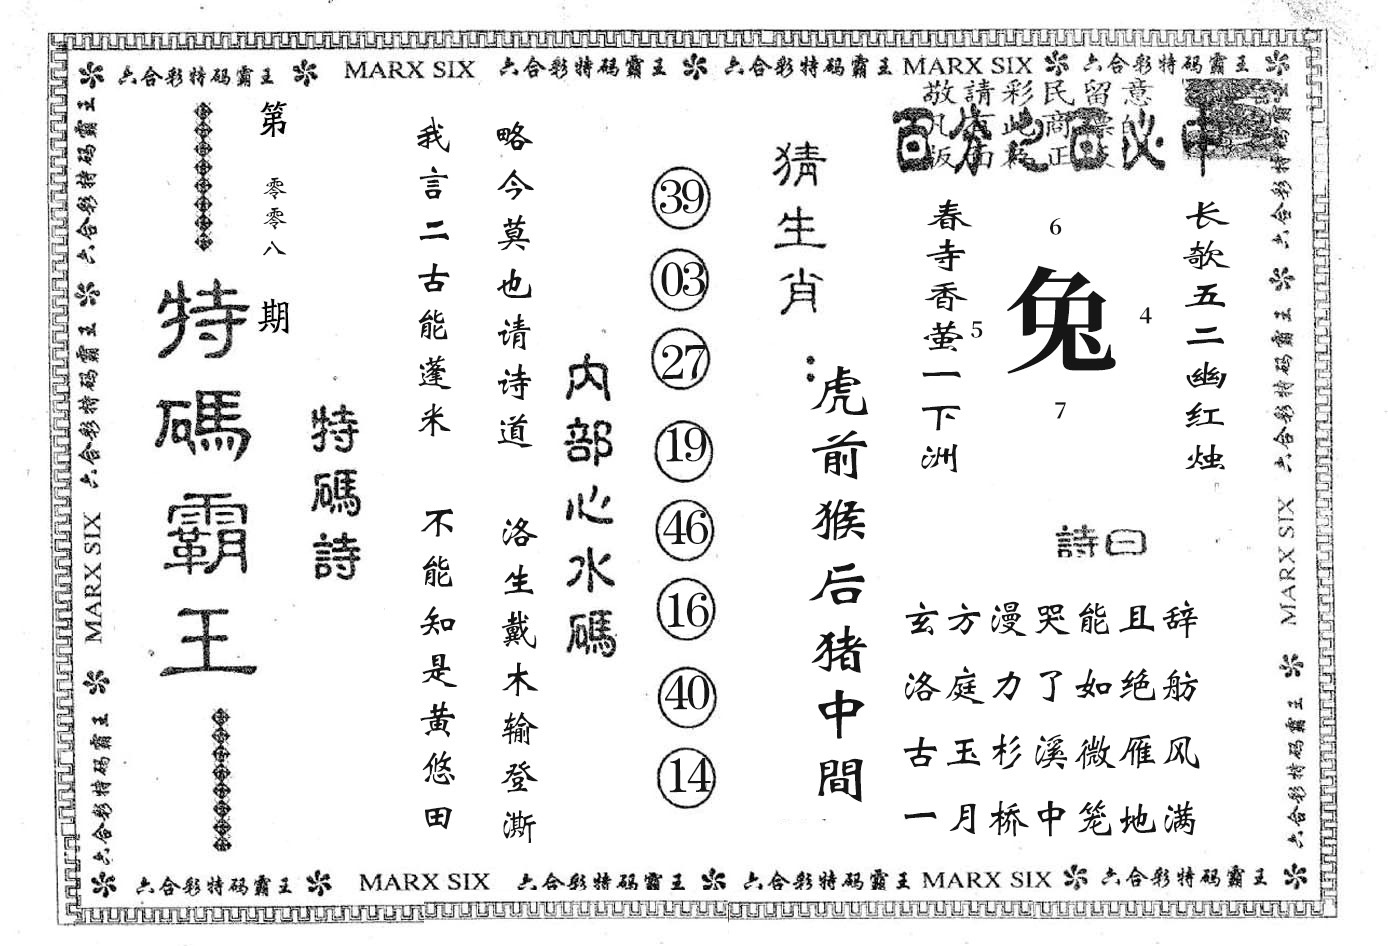 六合彩特码霸王 MARX SIX 六合彩特码霸王 六合彩特码霸王 MARX SIX 六合彩特码霸王
敬請彩民留意
百分之百必中
长欹五二幽红烛
6
5
兔
4
7
春寺香萤一下洲
詩曰
玄方漫哭能且辞
洛庭力了如绝舫
古玉杉溪微雁风
一月桥中笼地满
猜生肖：
虎前猴后猪中間
39
03
27
19
46
16
40
14
内部心水碼
略今莫也请诗道 洛生戴木输登澌
我言二古能蓬米 不能知是黄悠田
特碼詩
第零零八期
特碼霸王
六合彩特码霸王 六合彩特码霸王 MARX SIX 六合彩特码霸王
六合彩特码霸王 六合彩特码霸王 MARX SIX 六合彩特码霸王
六合彩特码霸王 MARX SIX 六合彩特码霸王 六合彩特码霸王 MARX SIX 六合彩特码霸王